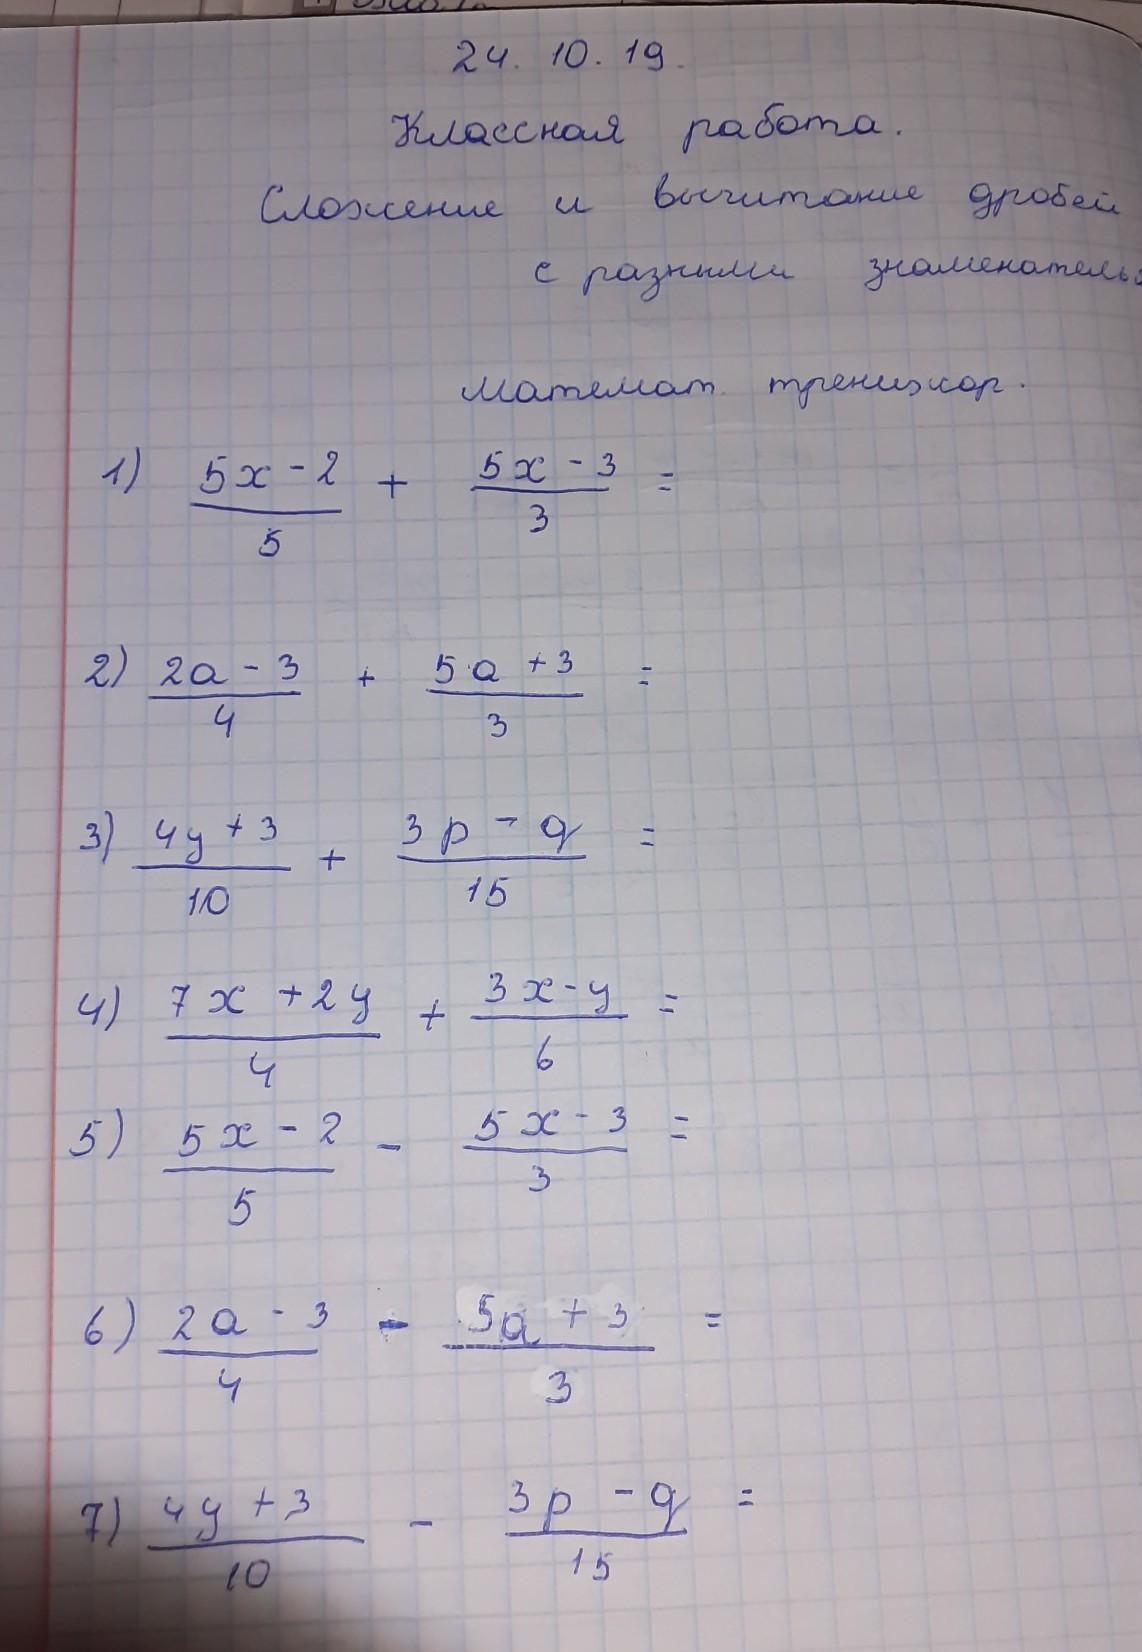 24. 10. 19.
Классная работа.
Сложение и вычитание дробей
с разными
Математ. тренижор.
1) (5x - 2)/5 + (5x - 3)/3 =
2) (2a - 3)/4 + (5a + 3)/3 =
3) (4y + 3)/10 + (3p - q)/15 =
4) (7x + 2y)/4 + (3x - y)/6 =
5) (5x - 2)/5 - (5x - 3)/3 =
6) (2a - 3)/4 - (5a + 3)/3 =
7) (4y + 3)/10 - (3p - q)/15 =